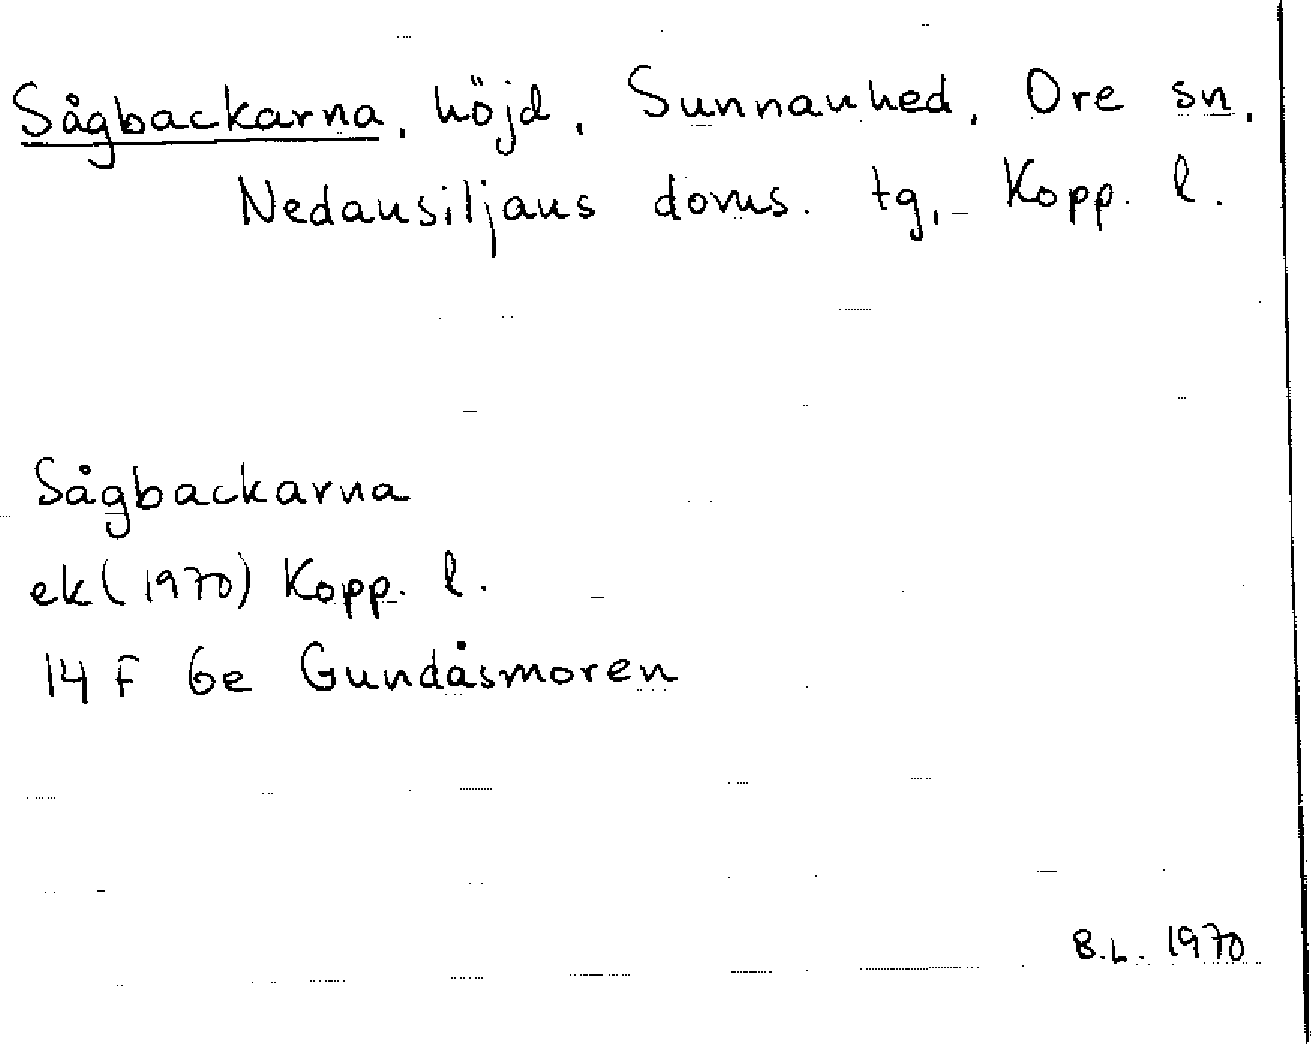 Sågbackarna, höjd, Sunnanhed, Ore sn,
Nedansiljans doms. tg, Kopp. l.
Sågbackarna
ek (1970) Kopp. l.
14 F 6e Gundåsmoren
B.L. 1970